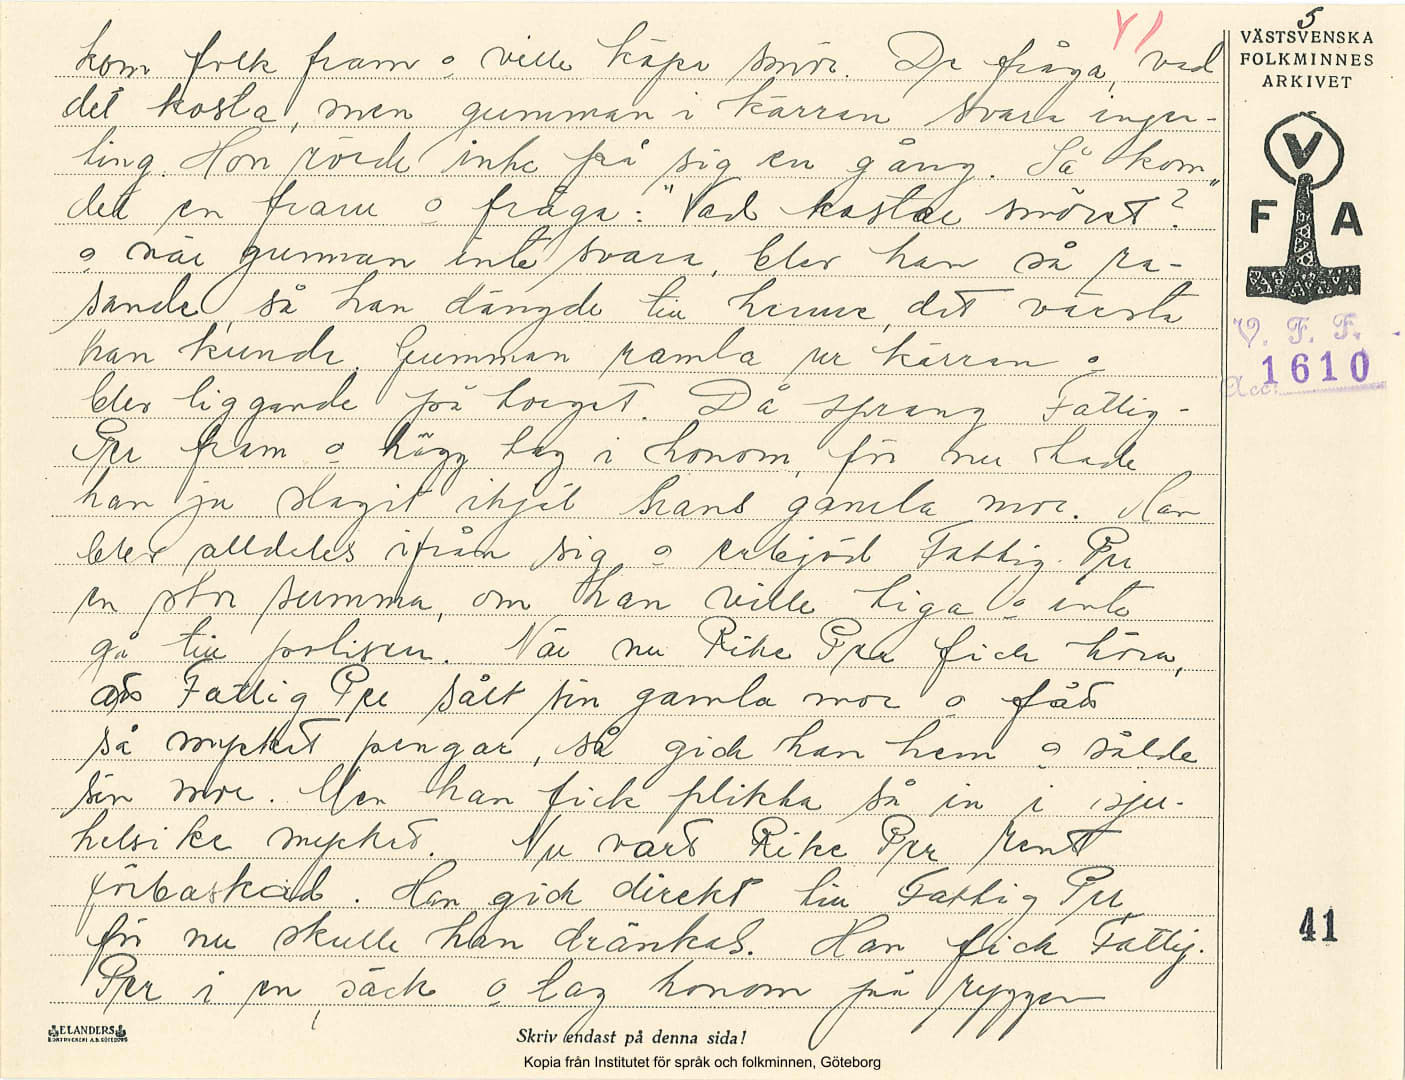 5
VÄSTSVENSKA
FOLKMINNES
ARKIVET
V
F A
V. F. F.
Acc. 1610
41
kom folk fram o ville köpa smör. De fråga, vad
det kosta, men gumman i kärran svara ingen-
ting. Hon rörde inte på sig en gång. Så kom
det en fram o fråga: "Vad kostar smöret?"
o när gumman inte svara, blev han så ra-
sande, så han dängde till henne, det värsta
han kunde. Gumman ramla ur kärran o
blev liggande på torget. Då sprang Fattig-
Per fram o högg tag i honom, för nu hade
han ju slagit ihjäl hans gamla mor. Han
blev alldeles ifrån sig o erbjöd Fattig-Per
en stor summa, om han ville tiga o inte
gå till polisen. När nu Rike Per fick höra,
att Fattig Per sålt sin gamla mor o fått
så mycket pengar, så gick han hem o sålde
sin mor. Men han fick plikta så in i sju-
helsike mycket. Nu vart Rike Per rent
förbaskad. Han gick direkt till Fattig Per
för nu skulle han dränkas. Han fick Fattig-
Per i en säck o tag honom på ryggen
ELANDERS
BOKTRYCKERI A.B. GÖTEBORG
Skriv endast på denna sida!
Kopia från Institutet för språk och folkminnen, Göteborg